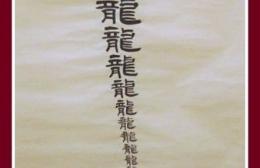 龍
龍
龍
龍
龍
龍
龍
龍
龍
龍